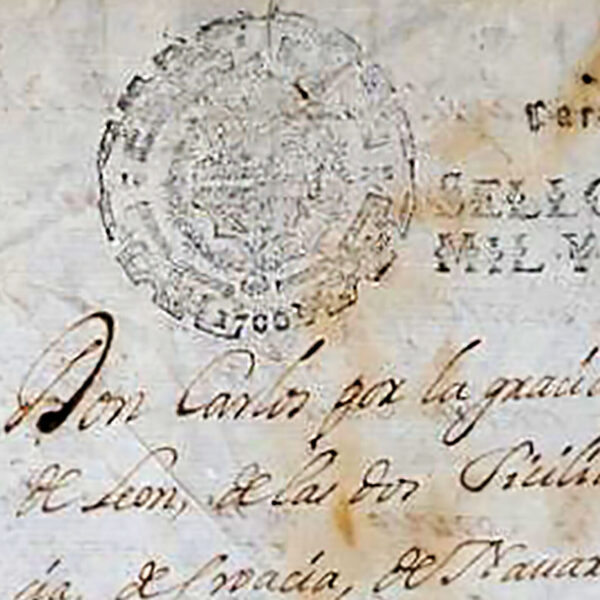 1700
SELLO
MIL Y
Don Carlos por la gracia
de Leon, de las dos Sicilia
cia, de Croacia, de Navar